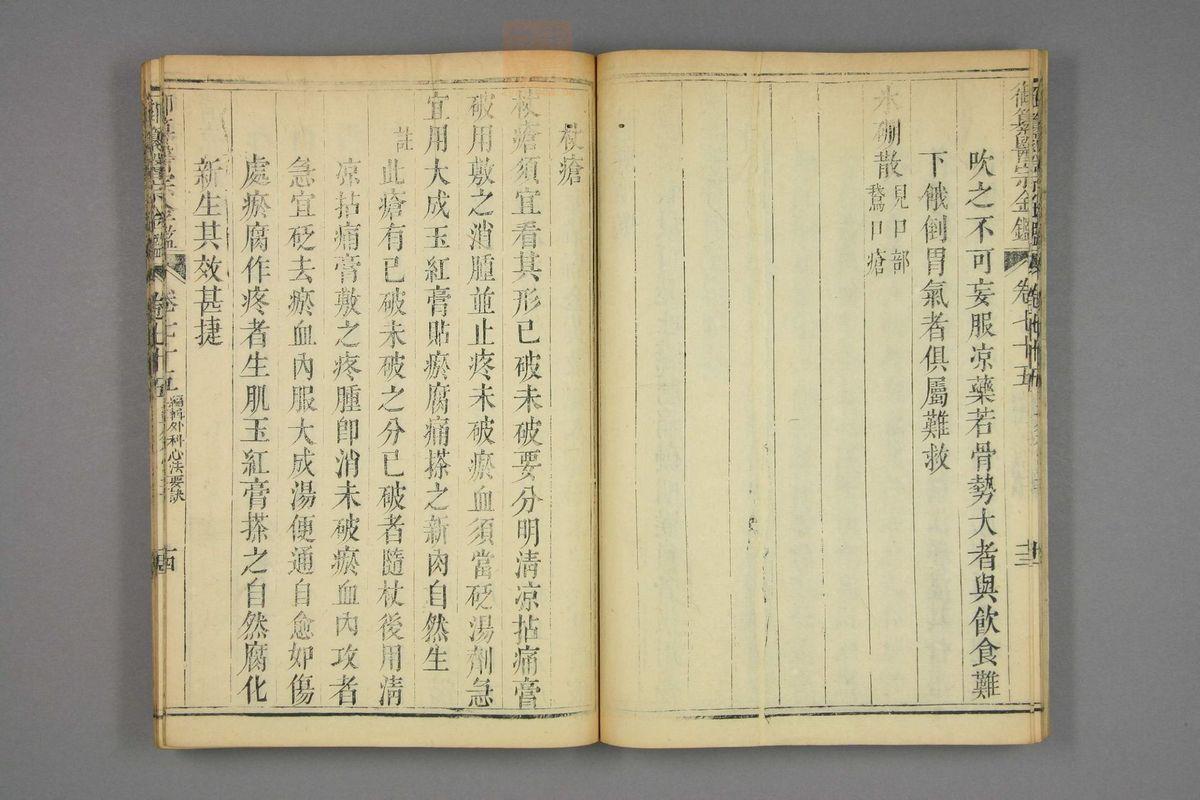 御纂醫宗金鑑 卷七十五 十三
吹之不可妄服凉藥若骨勢大者與飲食難
下餓倒胃氣者俱屬難救
氷硼散見口部
鵞口瘡
杖瘡
杖瘡須宜看其形已破未破要分明清凉拈痛膏
破用敷之消腫並止疼未破瘀血須當砭湯劑急
宜用大成玉紅膏貼瘀腐痛搽之新肉自然生
註此瘡有已破未破之分已破者隨杖後用清
凉拈痛膏敷之疼腫卽消未破瘀血內攻者
急宜砭去瘀血內服大成湯便通自愈如傷
處瘀腐作疼者生肌玉紅膏搽之自然腐化
新生其效甚捷
御纂醫宗金鑑 卷七十五 編輯外科心法要訣 十四